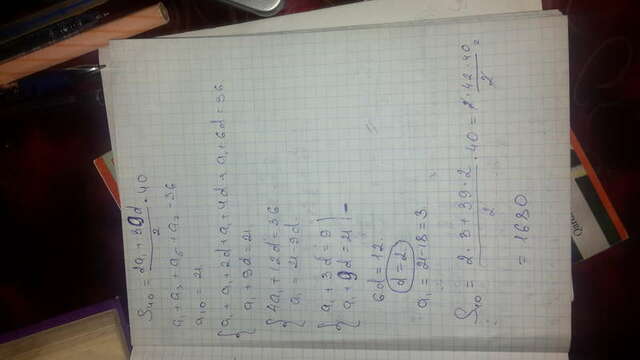 S₄₀ = (2a₁ + 39d)/2 · 40
a₁ + a₃ + a₅ + a₇ = 36
a₁₀ = 21
{ a₁ + a₁ + 2d + a₁ + 4d + a₁ + 6d = 36
a₁ + 9d = 21
{ 4a₁ + 12d = 36
a₁ = 21 - 9d
{ a₁ + 3d = 9
a₁ + 9d = 21 | -
6d = 12
d = 2
a₁ = 21 - 18 = 3
S₄₀ = (2 · 3 + 39 · 2)/2 · 40 = (2 · 42 · 40)/2 =
= 1680